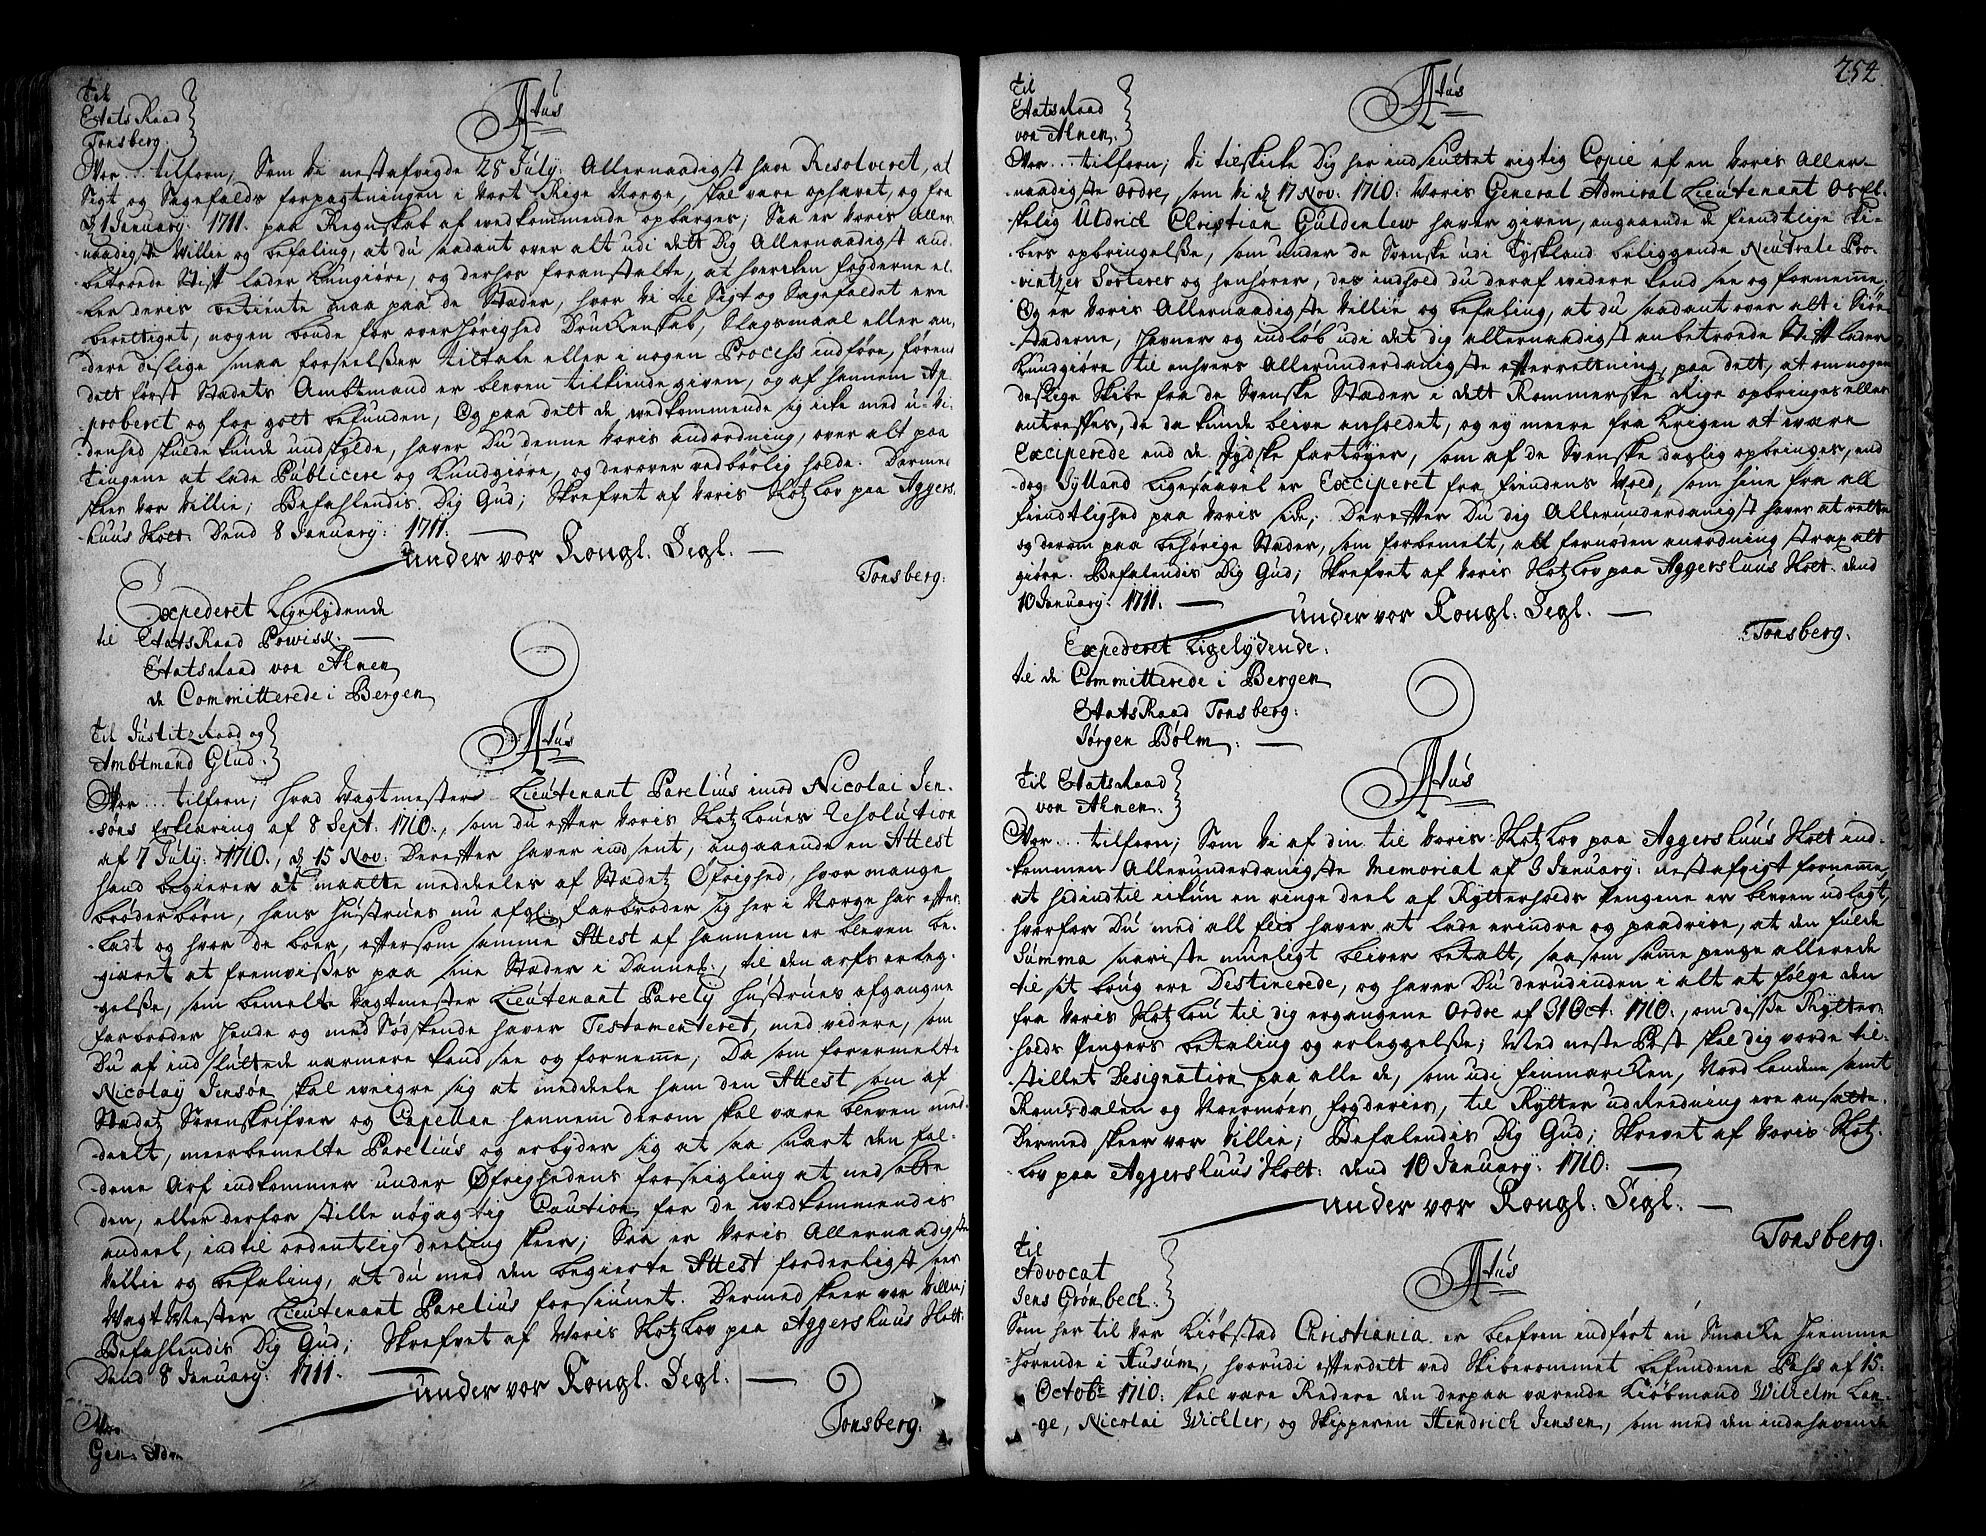 Til
Etats Raad
Tonsberg
Ftus
Vor... tilforn, Som Vi nestafvigde 28 July: Allernaadigst have Resolveret, at
Sigt og Sagefalds forpagtningen i Vort Rige Norge, skal være ophævet, og fra
d 1 January: 1711. paa Regnskab af wedkommende opbærges; Saa er Voris Aller-
naadigste Villie og befaling, at du saadant over alt udi dett Dig Allernaadigst anbe-
betroede Stift lader Kundgiøre, og derhos foranstalte, at hvercken fogderne el-
ler deris betiente maa paa de Stæder, hvor Vi til Sigt og Sagefaldet ere
berettiget, nogen bonde for overhørighed Druckenskab, Slagsmaal eller an-
dre deslige smaa forseelser tiltale eller i nogen Process indføre, førend
dett først Stædets Ambtmand er bleven tilkiende given, og af hannem Ap-
proberet og for gott befunden, Og paa dett de wedkommende sig icke med u-vi-
denhed skulde kunde undskylde, haver Du denne Voris andordning, over alt paa
Tingene at lade Publicere og Kundgiøre, og derover vedbørlig holde. Dermed
skeer Vor Villie; Befahlendis Dig Gud; Skrefvet af Voris Slotzlov paa Aggers-
huus Slott. Dend 8 January: 1711.
under vor Kongl. Segl.
Tonsberg.
Expederet Ligelydende
til Etats Raad Powisk.
Etatsraad von Ahnen
de Committerede i Bergen
Til Justitz Raad og
Ambtmand Glud.
Ftus
Vor... tilforn; Hvad Wagtmester Lieutenant Parelius imod Nicolai Jen-
søns Erklæring af 8 Sept: 1710., som du efter Voris Slotzlovens Resolution
af 7 July: 1710., d 15 Nov: Derefter haver indsent, angaaende en Attest
hand begierer at maatte meddeeles af Stædetz Øfrighed, hvor mange
brøderbørn, hans Hustrues nu afgl: farbroder sig her i Norge har efter-
ladt og hvor de boer, eftersom samme Attest af hannem er bleven be-
giæret at fremvises paa sine Stæder i Danne., til den arfs erleg-
gelse, som bemelte Wagtmester Lieutenant Parely Hustrues afgangne
farbroder Hende og med Sødskende haver Testamenteret, med videre, som
Du af indsluttede nærmere kand see og fornemme, Da som forermelte
Nicolay Jensøn skal weigre sig at meddeele ham den Attest som af
Stædetz Sorenskrifver og Capellan hannem derom skal være bleven med-
deelt, meerbemelte Parelius og erbyder sig at saa snart den fal-
dene Arf indkommer under Øfrighedens forseigling at nedsette
den, eller derfor stille nøyagtig Caution for de wedkommendis
andeel, indtil ordentlig deeling skeer; Saa er Voris Allernaadigste
Villie og befaling, at du med den begierte Attest forderligst seer
WagtMester Lieutenant Parelius forsiunet. Dermed skeer vor Villie;
Befahlendis Dig Gud; Skrefvet af Woris Slotzlov paa Aggershuus Slott.
Dend 8 January: 1711.
under vor Kongl. Segl.
Tonsberg.
Vor
Gen: Adm
252
Til
Etatsraad
von Ahnen.
Ftus
Vor... tilforn; Vi tilskicke Dig her indsluttet rigtig Copie af en Voris Aller-
naadigste Ordre, som Vi d 17 Nov. 1710: Woris General Admiral Lieutenant Os El-
skelig Uldrich Christian Guldenlew haver given, angaaende de fiendtlige Ski-
bers opbringelse, som under de Svenske udi Tydskland beliggende Neutrale Pro-
vintzer Sorterer og henhører, des indhold du deraf widere kand see og fornemme.
Og er Voris Allernaadigste Villie og befaling, at du saadant over alt i Siøe-
stæderne, Havner og indløb udi det dig allernaadigst anbetroede Stift lader
Kundgiøre til enhvers Allerunderdanigste efterretning, paa dett, at om nogen
deslige Skibe fra de Svenske Stæder i dett Rommerske Rige opbringes eller
antreffes, de da kunde blive anholdet, og ey meere fra Krigen at være
Exciperede end de Jydske fartøyer, som af de Svenske daglig opbringes, end
dog Jylland ligesaavel er Exciperet fra fiendens Wold, som hine fra all
fiendtlighed paa Voris side; Derefter Du dig Allerunderdanigst haver at rette
og derom paa behørige Stæder, som forbemelt, all fornøden anordning strax att
giøre. Befalendis Dig Gud; Skrefvet af Voris Slotzlov paa Aggershuus Slott. dend
10 January: 1711.
under vor Kongl. Segl.
Tonsberg.
Expederet Ligelydende.
til de Committerede i Bergen
Etats Raad Tonsberg:
Jørgen Bølm.
Til Etats Raad
von Ahnen.
Ftus
Vor... tilforn; Som Vi af din til Voris Slotzlov paa Aggershuus Slott ind-
kommen Allerunderdanigste Memorial af 3 January: nestafvigt fornemme,
at hedindtil ickun en ringe deel af Rytterholds Pengene er bleven udlagt,
hvorfor Du med all flid haver at lade erindre og paadrive, at den fulde
Summa snariste mueligt bliver betalt, saasom same penge allerede
til sit brug ere Destinerede, og haver Du derudinden i alt at følge den
fra Voris Slotzlov til dig ergangene Ordre af 31 Oct: 1710., om disse Rytter-
holds Pengers betaling og erleggelse; Med neste Post skal dig vorde til-
stillet Designation paa alle de, som udi Finmarcken, Nordlandene samt
Romsdalen og Noermøers fogderier, til Rytter udReedning ere ansatte.
Dermed skeer vor Villie; Befalendis Dig Gud; Skrevet af Voris Slotz-
lov paa Aggershuus Slott: dend 10 January: 1710:
under vor Kongl: Segl.
Tonsberg.
Til
Advocat
Jens Grønbech.
Ftus
Som her til Vor Kiøbstad Christiania er blefven indført en Smacke hiemme
hørende i Husum, hvorudi efterdett ved Skiberommet befundene Pass af 15.
Octobr 1710: skal være Redere den derpaa værende Kiøbmand Wilhelm Lan-
ge, Nicolai Wichler, og Skipperen Hendrich Jensen, som med den indehavende